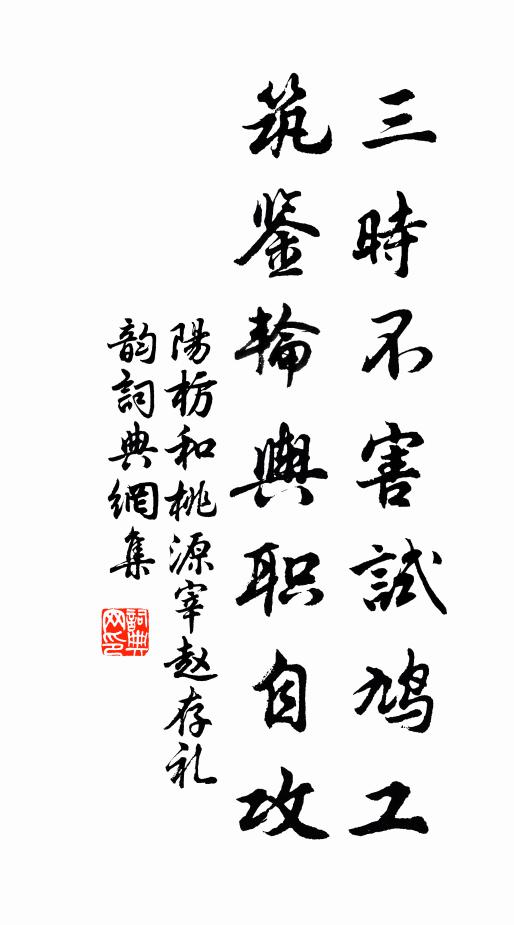 三時不害試鳩工
筑鉴輪輿职自攻
陽枋和桃源宰赵存礼
韵詞典網集
詞典網印